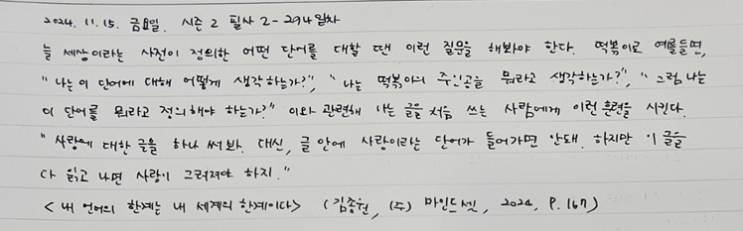 2024. 11. 15. 금요일. 시즌 2 필사 2-294일차
늘 세상이라는 사전이 정의한 어떤 단어를 대할 땐 이런 질문을 해봐야 한다. 떡볶이로 예를들면,
"나는 이 단어에 대해 어떻게 생각하는가?", "나는 떡볶이의 주인공을 뭐라고 생각하는가?", "그럼 나는
이 단어를 뭐라고 정의해야 하는가?" 이와 관련해 나는 글을 처음 쓰는 사람에게 이런 훈련을 시킨다.
"사랑에 대한 글을 하나 써봐. 대신, 글 안에 사랑이라는 단어가 들어가면 안돼. 하지만 이 글을
다 읽고 나면 사랑이 그려져야 하지."
<내 언어의 한계는 내 세계의 한계이다> (김종원, (주) 마인드셋, 2024, P.167)